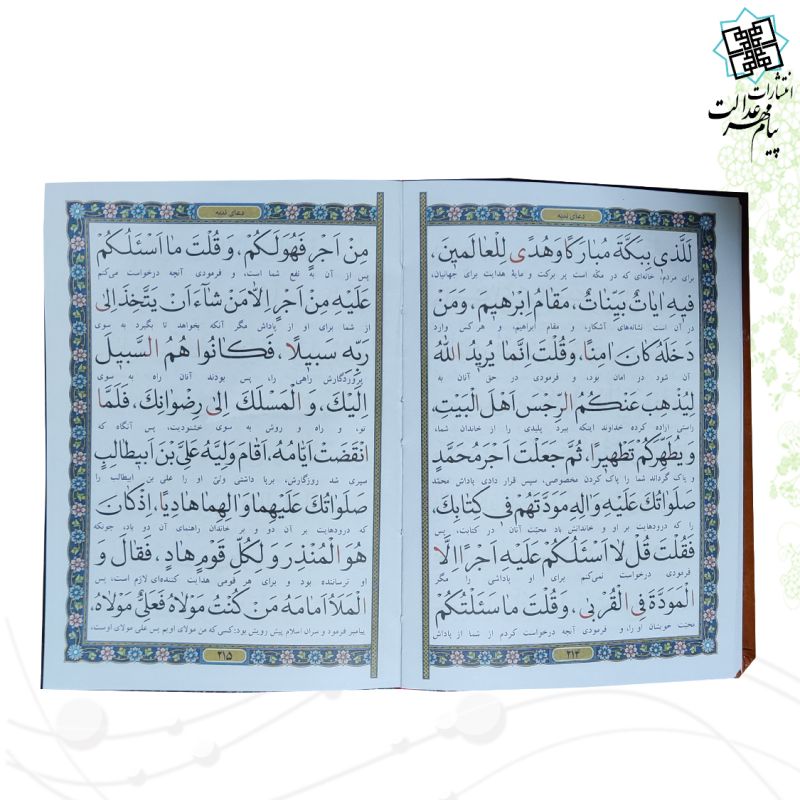 انتشارات
پیام مهر عدالت
دعای ندبه
لَلَّذی بِبَکَّةَ مُبارَکًا وَهُدًی لِلْعالَمینَ،
برای مردم؛ خانه‌ای که در مکّه است پر برکت و مایهٔ هدایت برای جهانیان،
فیهِ ایاتٌ بَیِّناتٌ، مَقامُ اِبْرهیمَ، وَمَنْ
در آن است نشانه‌های آشکار، و مقام ابراهیم، و هر کس وارد
دَخَلَهُ کانَ امِنًا، وَقُلْتَ اِنَّما یُریدُ اللهُ
آن شود در امان بود، و فرمودی در حق آنان به
لِیُذْهِبَ عَنْکُمُ الرِّجْسَ اَهْلَ الْبَیْتِ،
راستی اراده کرده خداوند اینکه ببرد پلیدی را از خاندان شما،
وَ یُطَهِّرَکُمْ تَطْهیرًا، ثُمَّ جَعَلْتَ اَجْرَ مُحَمَّدٍ
و پاک گرداند شما را پاک کردن مخصوصی، سپس قرار دادی پاداش محمّد
صَلَواتُكَ عَلَیْهِ وَالِهِ مَوَدَّتَهُمْ فی کِتابِكَ،
را که درودهایت بر او و خاندانش باد محبّت آنان در کتابت، پس
فَقُلْتَ قُلْ لا اَسْئَلُکُمْ عَلَیْهِ اَجْرًا اِلَّا
فرمودی درخواست نمی‌کنم برای او پاداشی را مگر
الْمَوَدَّةَ فِی الْقُرْبی، وَقُلْتَ ما سَئَلْتُکُمْ
محبّت خویشان او را، و فرمودی آنچه درخواست کردم از شما از پاداش
۲۱۴
دعای ندبه
مِنْ اَجْرٍ فَهُوَلَکُمْ، وَ قُلْتَ ما اَسْئَلُکُمْ
پس از آن به نفع شما است، و فرمودی آنچه درخواست می‌کنم
عَلَیْهِ مِنْ اَجْرٍ اِلَّا مَنْ شآءَ اَنْ یَتَّخِذَ اِلی
از شما برای او از پاداش مگر آنکه بخواهد تا بگیرد به سوی
رَبِّهِ سَبیلًا، فَکانُوا هُمُ السَّبیلَ
پروردگارش راهی را، پس بودند آنان راه به سوی
اِلَیْكَ، وَ الْمَسْلَكَ اِلی رِضْوانِكَ، فَلَمَّا
تو، و راه و روش به سوی خشنودیت، پس آنگاه که
انْقَضَتْ اَیّامُهُ، اَقامَ وَلِیَّهُ عَلِیَّ بْنَ اَبیطالِبٍ
سپری شد روزگارش، برپا داشتی ولیّ او را علی بن ابیطالب را
صَلَواتُكَ عَلَیْهِما وَالِهِما هادِیًا، اِذْ کانَ
که درودهایت بر آن دو و بر خاندان راهنمای آن دو باد، چونکه
هُوَ الْمُنْذِرَ وَ لِکُلِّ قَوْمٍ هادٍ، فَقالَ وَ
او ترساننده بود و برای هر قومی هدایت کننده‌ای لازم است، پس
الْمَلَاُ اَمامَهُ مَنْ کُنْتُ مَوْلاهُ فَعَلِیٌّ مَوْلاهُ،
پیامبر فرمود و سران اسلام پیش رویش بود: کسی که من مولای اویم پس علی مولای اوست،
۲۱۵